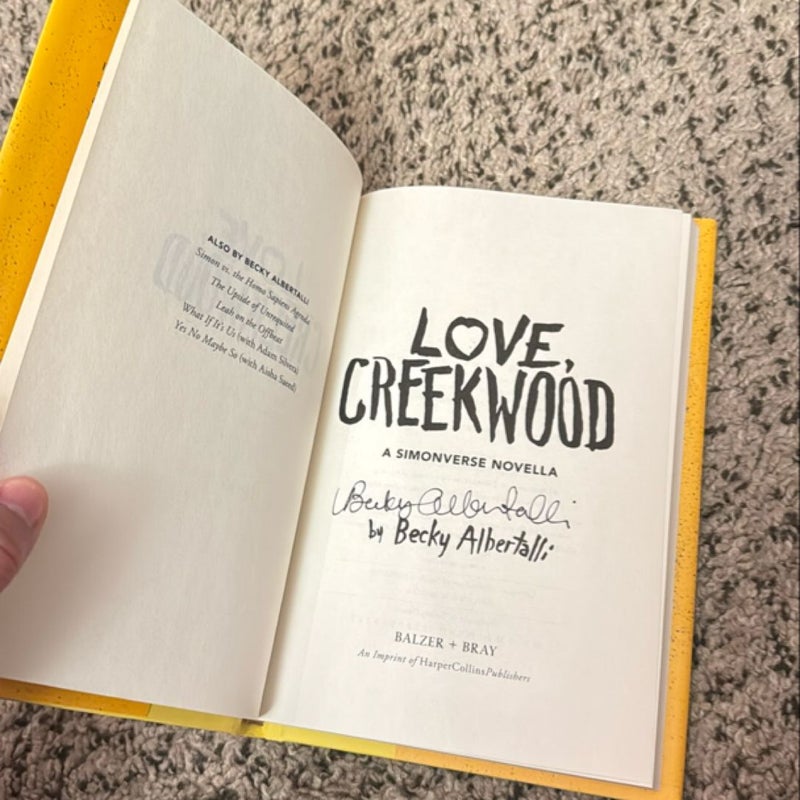 ALSO BY BECKY ALBERTALLI
Simon vs. the Homo Sapiens Agenda
The Upside of Unrequited
Leah on the Offbeat
What If It's Us (with Adam Silvera)
Yes No Maybe So (with Aisha Saeed)
LOVE,
CREEKWOOD
A SIMONVERSE NOVELLA
Becky Albertalli
by Becky Albertalli
BALZER + BRAY
An Imprint of HarperCollinsPublishers